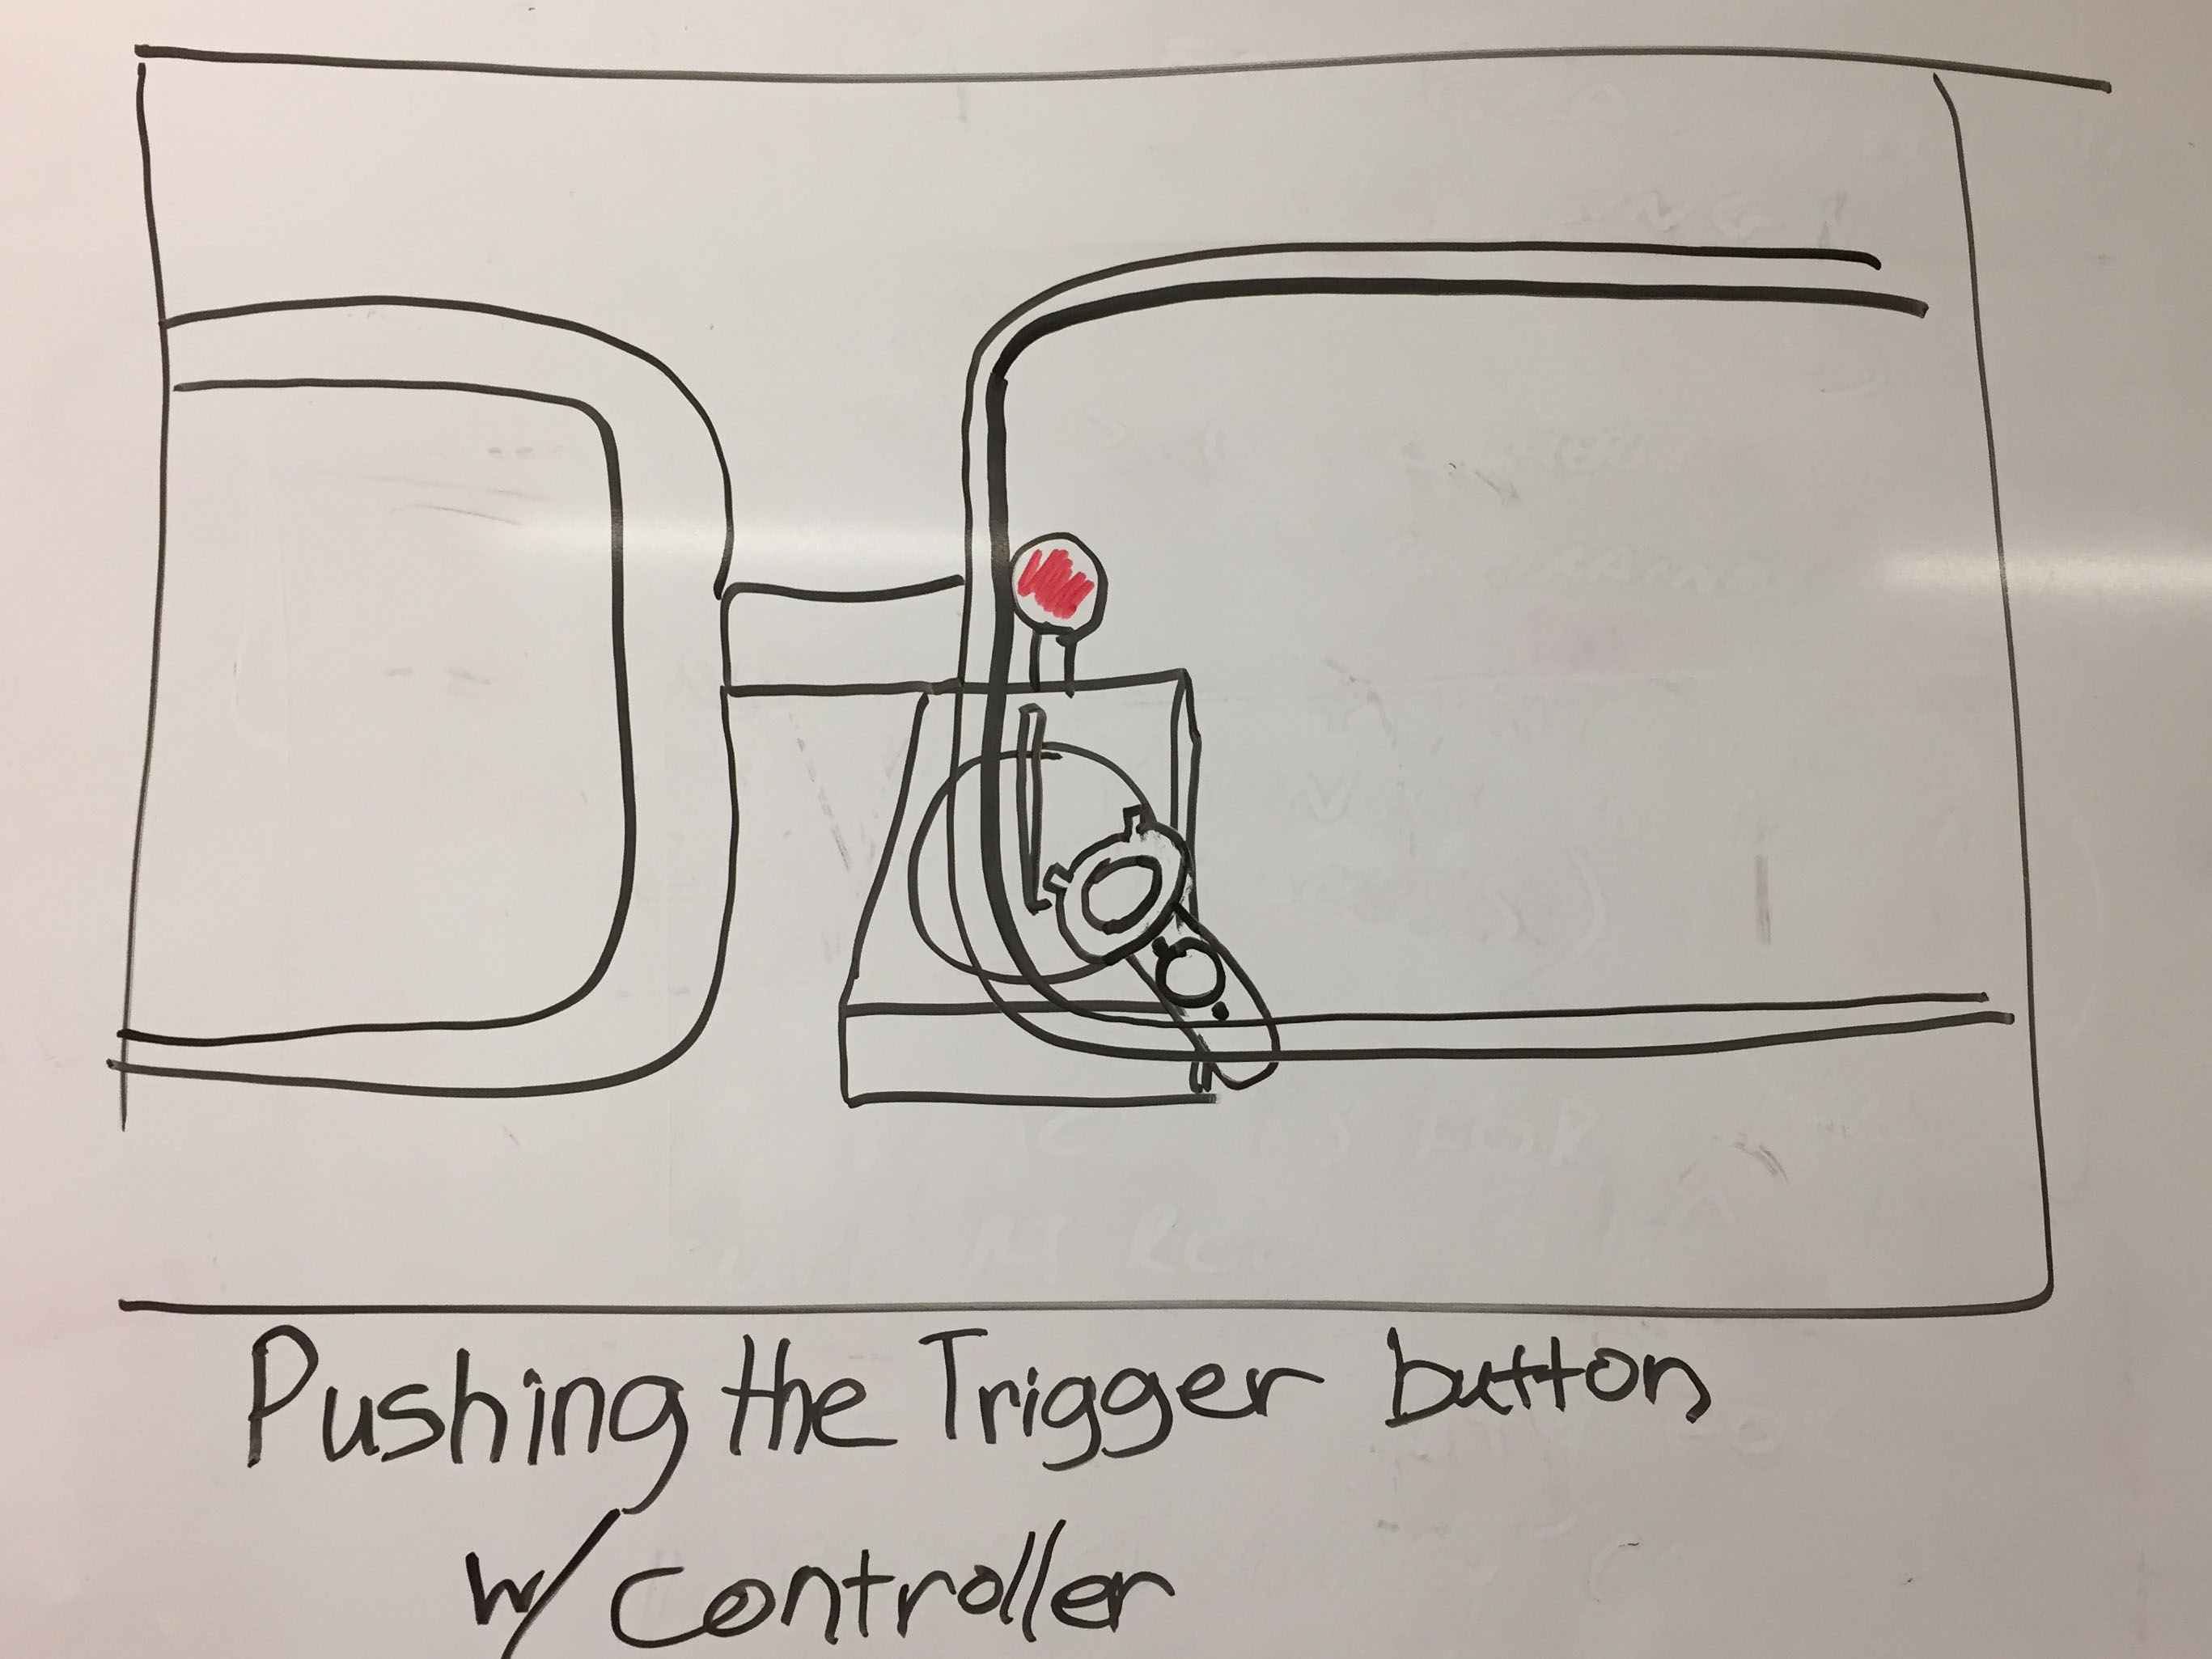 Pushing the Trigger button
w/ controller